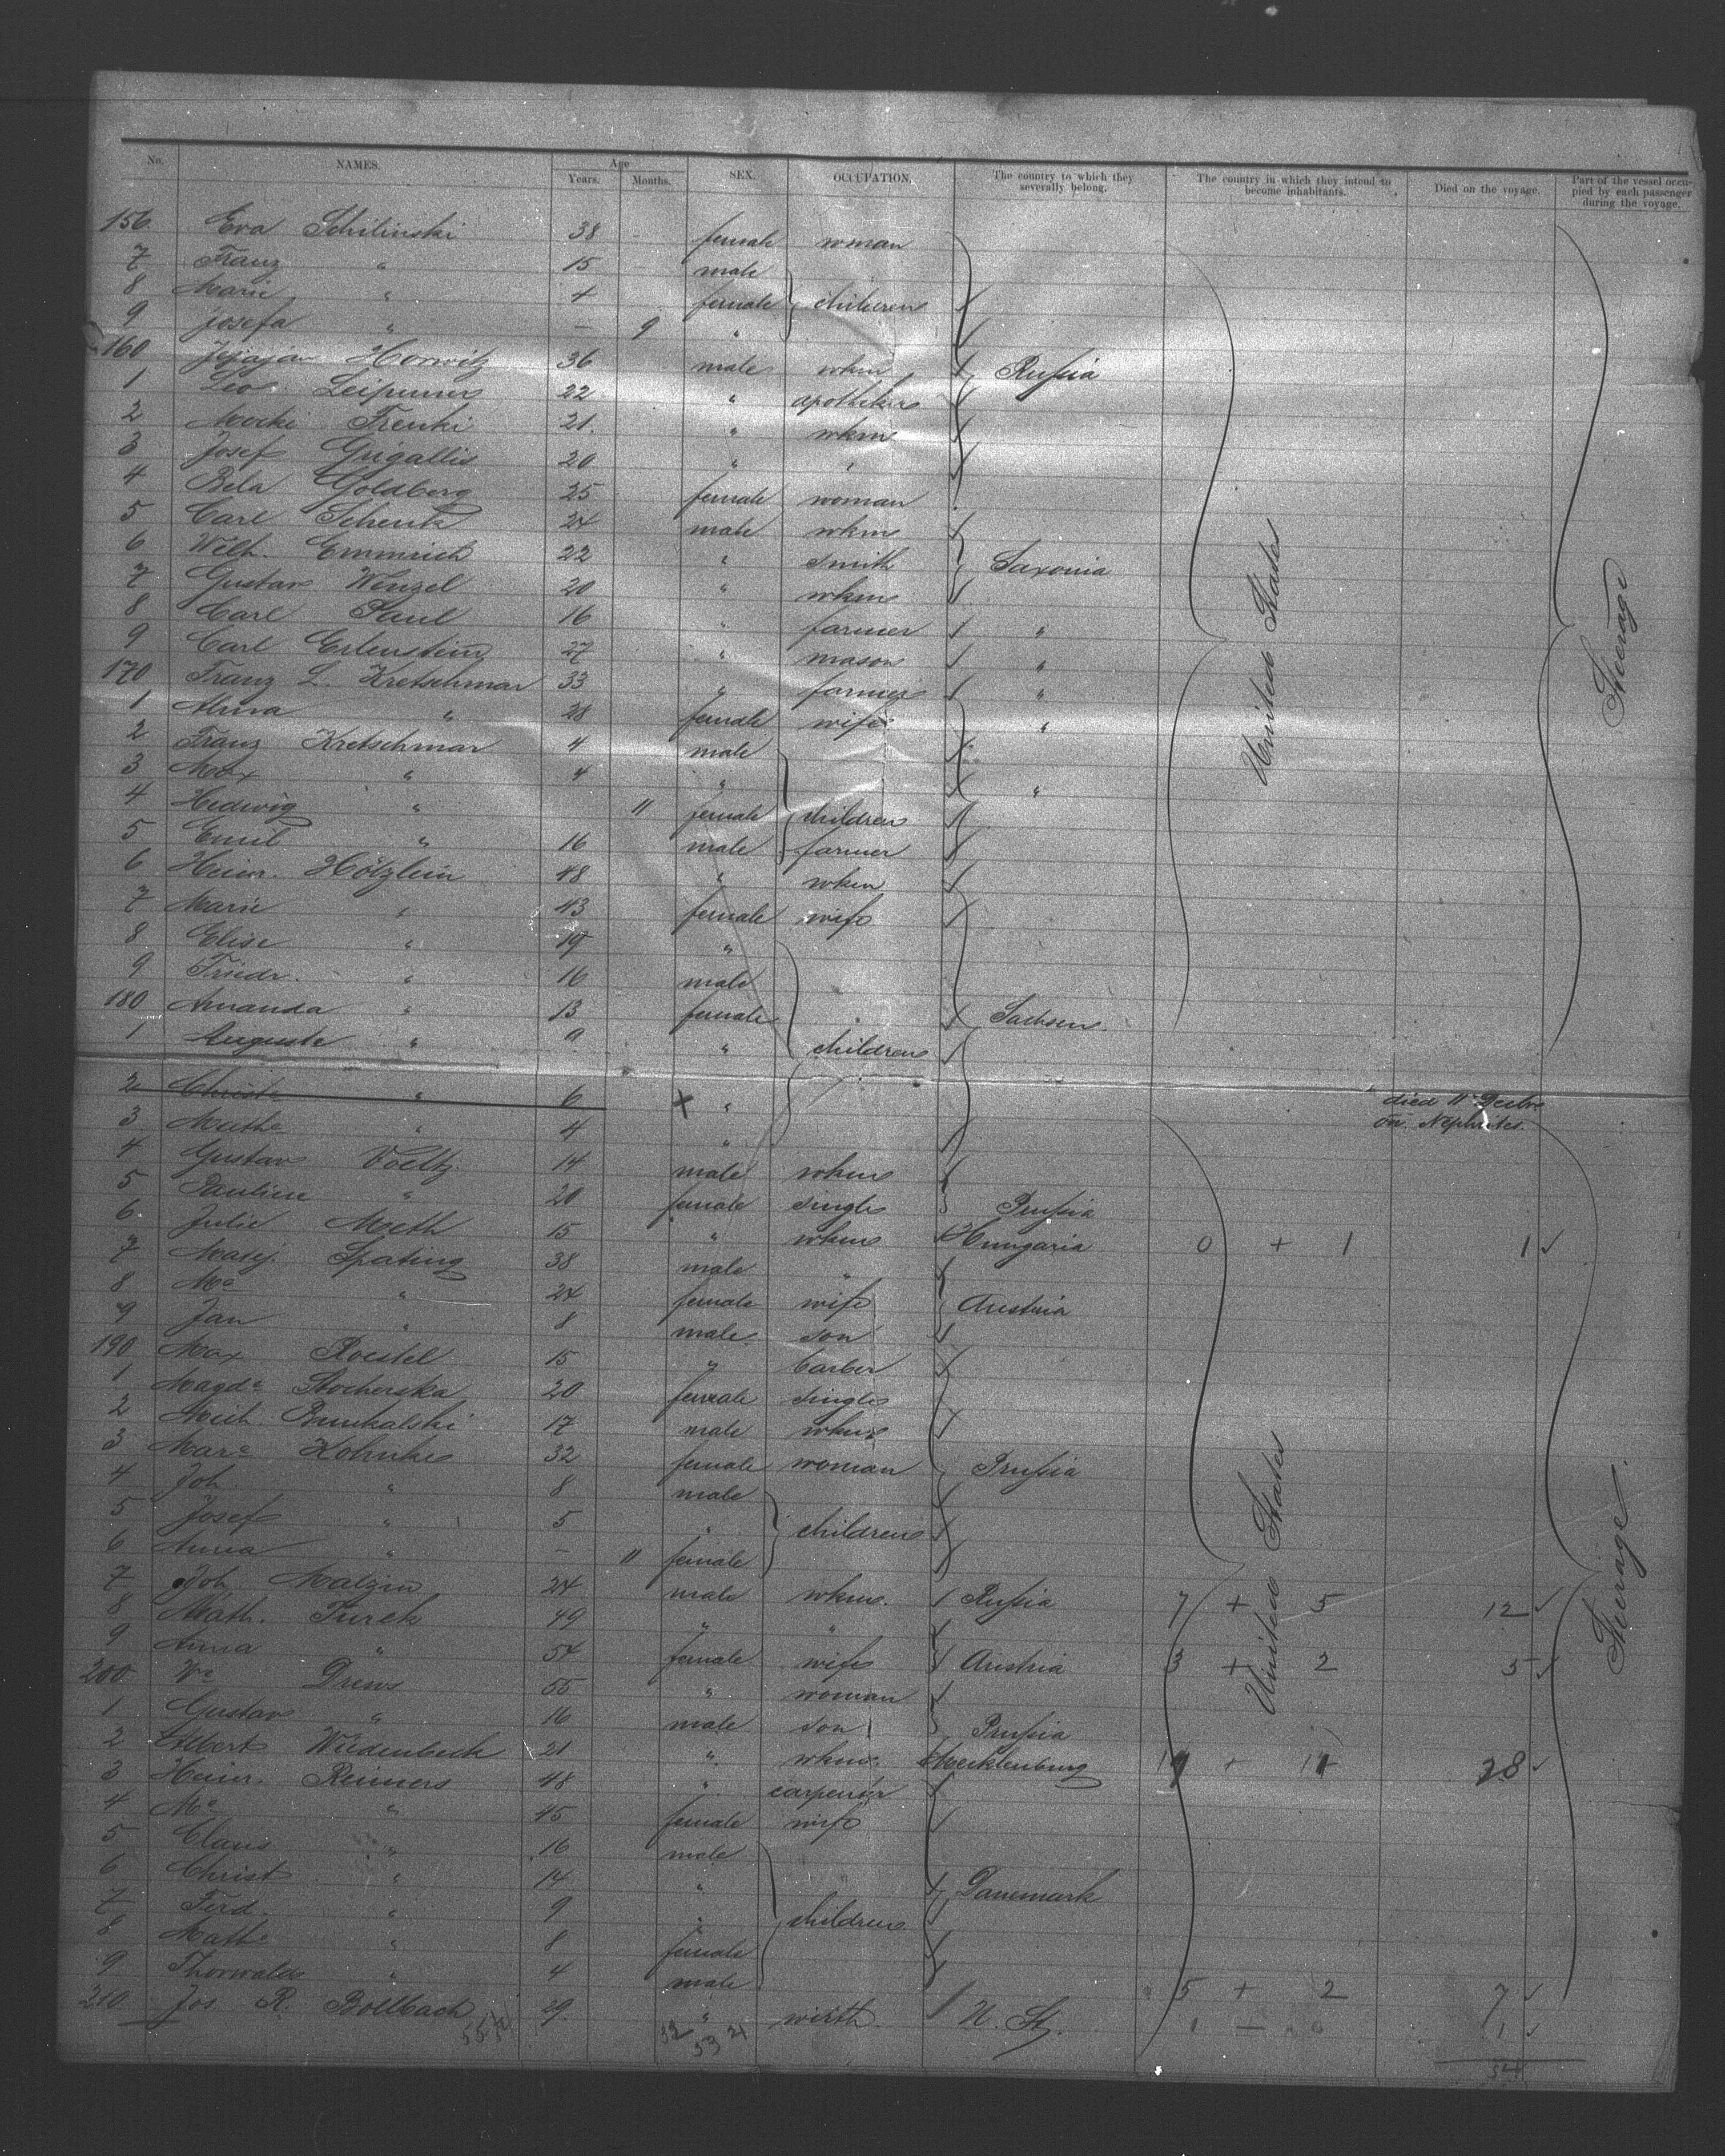 No. NAMES. Age Years. Months. SEX. OCCUPATION. The country to which they severally belong. The country in which they intend to become inhabitants. Died on the voyage. Part of the vessel occupied by each passenger during the voyage.
156 Eva Schilinski 38 - female woman
7 Franz " 15 male
8 Marie " 4 female children
9 Josefa " - 9 "
160 Horwitz 36 male wkm Russia
1 Leo 22 " apotheker
2 21. " wkm
3 Josef Grigallis 20 " "
4 Bela Goldberg 25 female woman
5 Carl Schenk 24 male wkm
6 Wilh. Emmrich 22 " smith Saxonia
7 Gustav Wenzel 20 " wkm
8 Carl Paul 16 " farmer "
9 Carl Erlenstein 27 " mason "
170 Franz L. Kretschmar 33 " farmer "
1 Alma " 28 female wife "
2 Franz Kretschmar 4 male
3 Max " 4 " "
4 Hedwig " 11 female children
5 Emil " 16 male farmer
6 Heinr. Hölzlein 48 " wkm
7 Marie " 43 female wife
8 Elise " 19 "
9 Friedr. " 16 male
180 Amanda " 13 female Sachsen
1 Auguste " 9 " children
United States
Steerage
2 Christe " 6 X " died 11t Decbr on Nephrites.
3 " 4 "
4 Gustav Voeltz 14 male wkm
5 Pauline " 20 female single Prussia
6 Julie Meth 15 " wkm Hungaria 0 + 1 1
7 Matej. Spating 38 male "
8 Me " 24 female wife Austria
9 Jan " 8 male son
190 Max Roestel 15 " barber
1 Magde Stocherska 20 female single
2 Mich. 17 male wkm
3 Mare Kohnke 32 female woman Prussia
4 Joh. " 8 male
5 Josef " 5 " children
6 Anna " - 11 female
7 Joh. Malzin 24 male wkm. Russia 7 + 5 12
8 Math. Turek 49 " "
9 Anna " 54 female wife Austria 3 + 2 5
200 We Drews 55 " woman
1 Gustav " 16 male son Prussia
2 Albert Wiedenbeck 21 " wkm. Mecklenburg 28
3 Heinr. Reimers 48 " carpenter
4 Me " 45 female wife
5 Claus " 16 male
6 Christ " 14 " Danemark
7 Ferd. " 9 " children
8 Mathe " 8 female
9 Thorwald " 4 male 5 + 2 7
210 Jos. R. Bollbach 29. " wirth U. St. 1 - 0 1
United States
Steerage
54